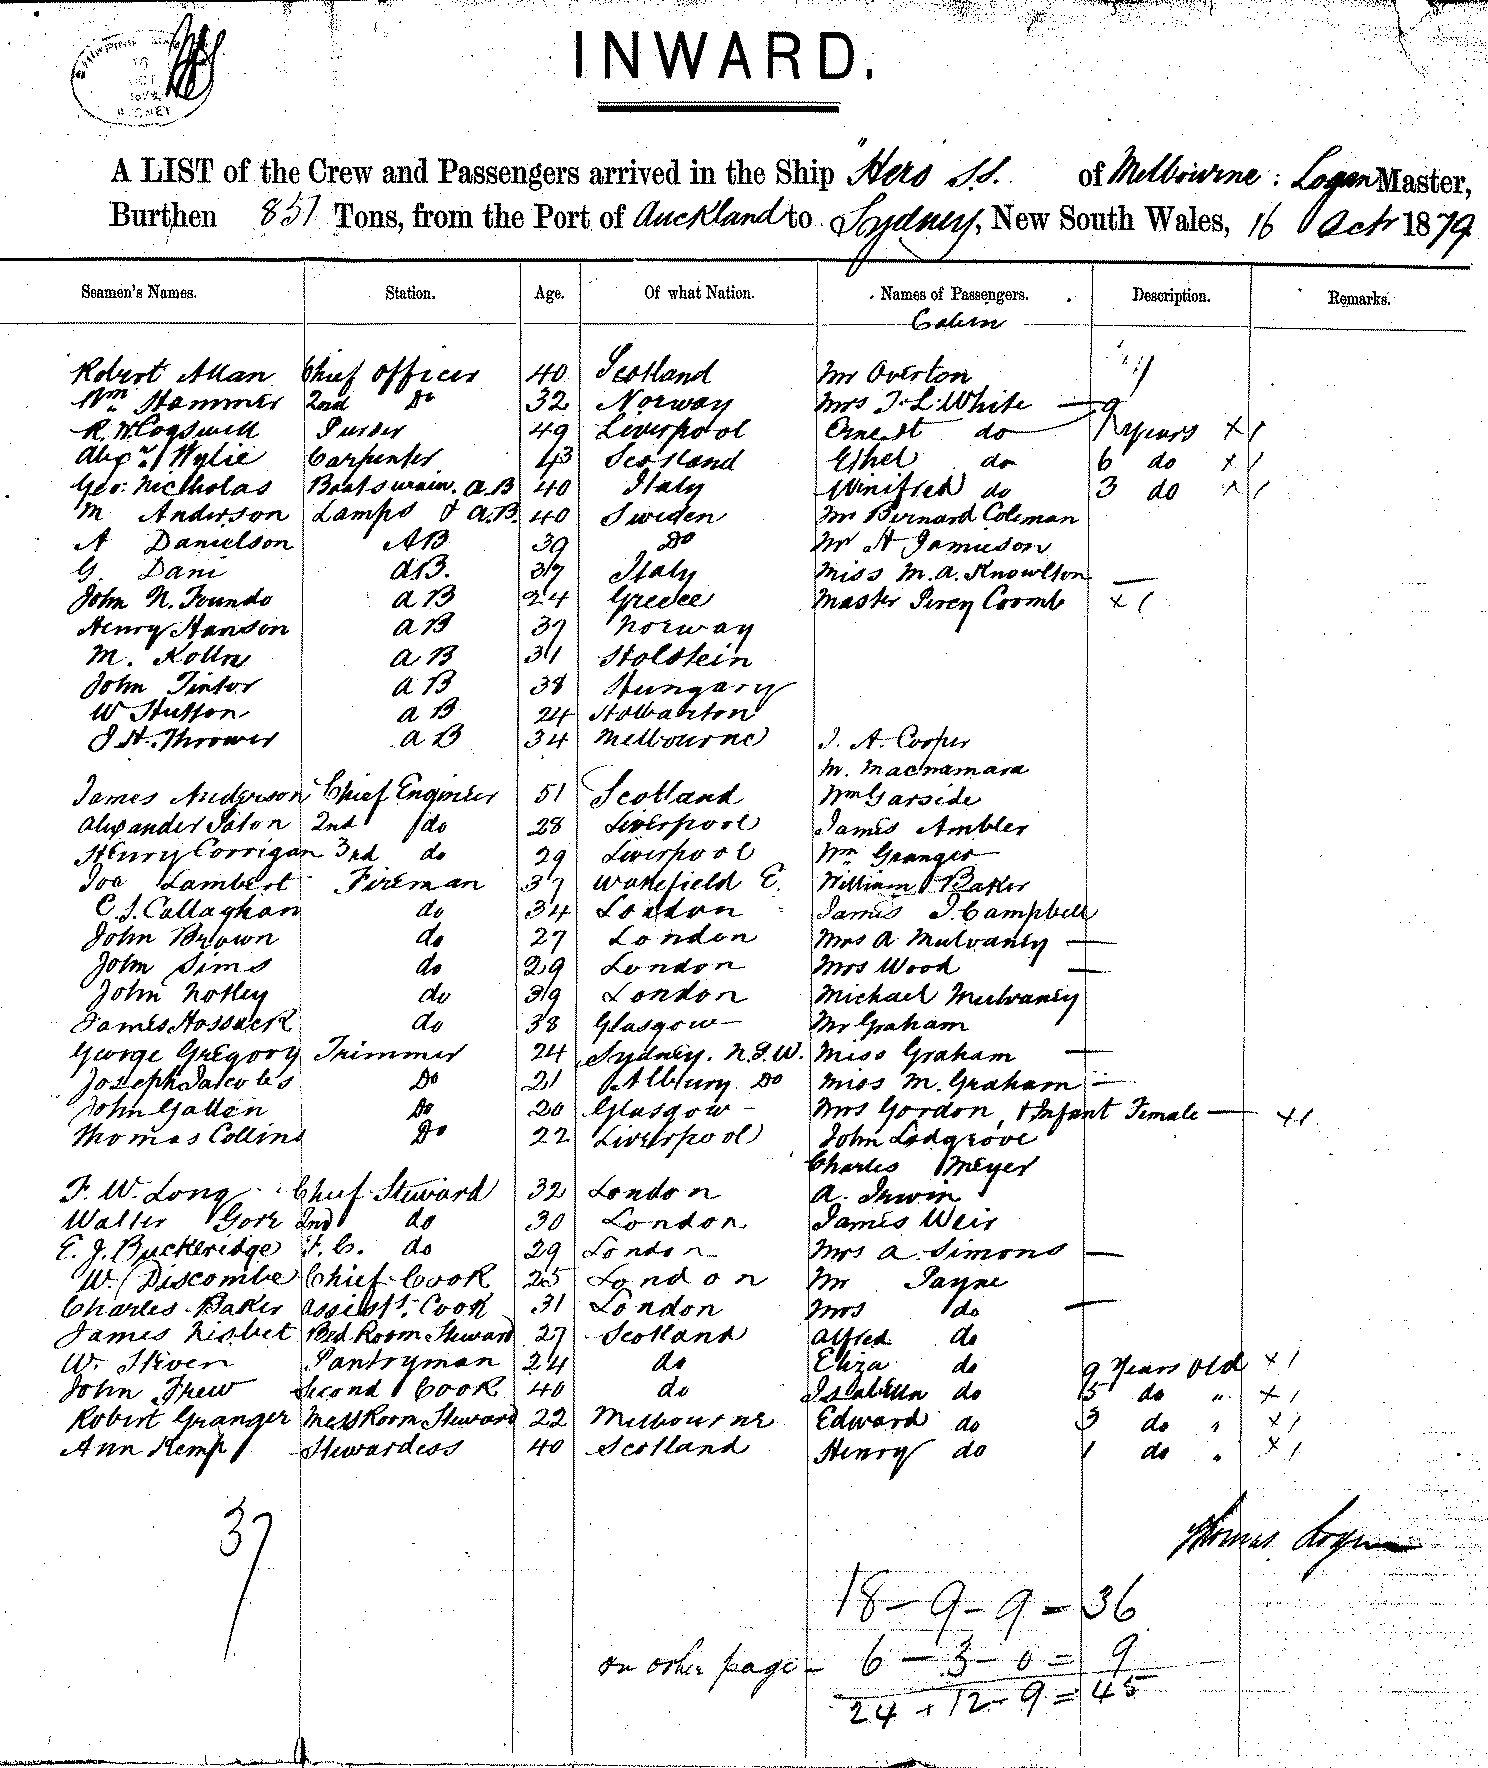 INWARD.
A LIST of the Crew and Passengers arrived in the Ship "Hero S.S. of Melbourne: Logan Master,
Burthen 851 Tons, from the Port of Auckland to Sydney, New South Wales, 16 Octr 1879
Seamen's Names. Station. Age. Of what Nation. Names of Passengers. Description. Remarks.
Cabin
Robert Allan Chief Officer 40 Scotland Mr Overton
Wm Hammer 2nd Do 32 Norway Mrs T. L. White —
R. W. Cogswell Purser 49 Liverpool Ernest do years x1
Alexr Wylie Carpenter 43 Scotland Ethel do 6 do x1
Geo: Nicholas Boatswain. A.B 40 Italy Winifred do 3 do x1
M Anderson Lamps & A.B. 40 Sweden Mr Bernard Coleman
A Danielson AB 39 Do Mr A Jamieson
G. Dani A.B. 37 Italy Miss M. A. Knowlton —
John N. Foundo AB 24 Greece Master Percy Coomb x1
Henry Hanson AB 37 Norway
M. Kolln AB 31 Holstein
John Tintor AB 38 Hungary
W Hutson AB 24 Hobarton
J H. Thrower AB 34 Melbourne J. A. Cooper
M. Macnamara
James Anderson Chief Engineer 51 Scotland Wm Garside
Alexander Paton 2nd do 28 Liverpool James Ambler
Henry Corrigan 3rd do 29 Liverpool Wm Granger
Joe Lambert Fireman 37 Wakefield E. William Baker
C. J. Callaghan do 34 London James J. Campbell
John Brown do 27 London Mrs A Mulvaney —
John Sims do 29 London Mrs Wood —
John Notley do 39 London Michael Mulvaney
James Hossack do 38 Glasgow Mr Graham
George Gregory Trimmer 24 Sydney. N.S.W. Miss Graham —
Joseph Jacobs Do 21 Albury Do Miss M. Graham —
John Gallen Do 20 Glasgow Mrs Gordon, & Infant Female — x1
Thomas Collins Do 22 Liverpool John Lodgrove
Charles Meyer
F. W. Long Chief Steward 32 London A. Irwin
Walter Gore 2nd do 30 London James Weir
E. J. Buckeridge F. C. do 29 London Mrs A. Simons —
W. Discombe Chief Cook 25 London Mr Payne
Charles Baker Assistt. Cook 31 London Mrs do —
James Nisbet Bed Room Steward 27 Scotland Alfred do
W. Steven Pantryman 24 do Eliza do 9 Years Old x1
John Frew Second Cook 40 do Isabella do 5 do " x1
Robert Granger Mess Room Steward 22 Melbourne Edward do 3 do " x1
Ann Kemp Stewardess 40 Scotland Henry do 1 do " x1
37
Thomas Logan
18 – 9 – 9 = 36
on other page – 6 – 3 – 0 = 9
24 + 12 - 9 = 45